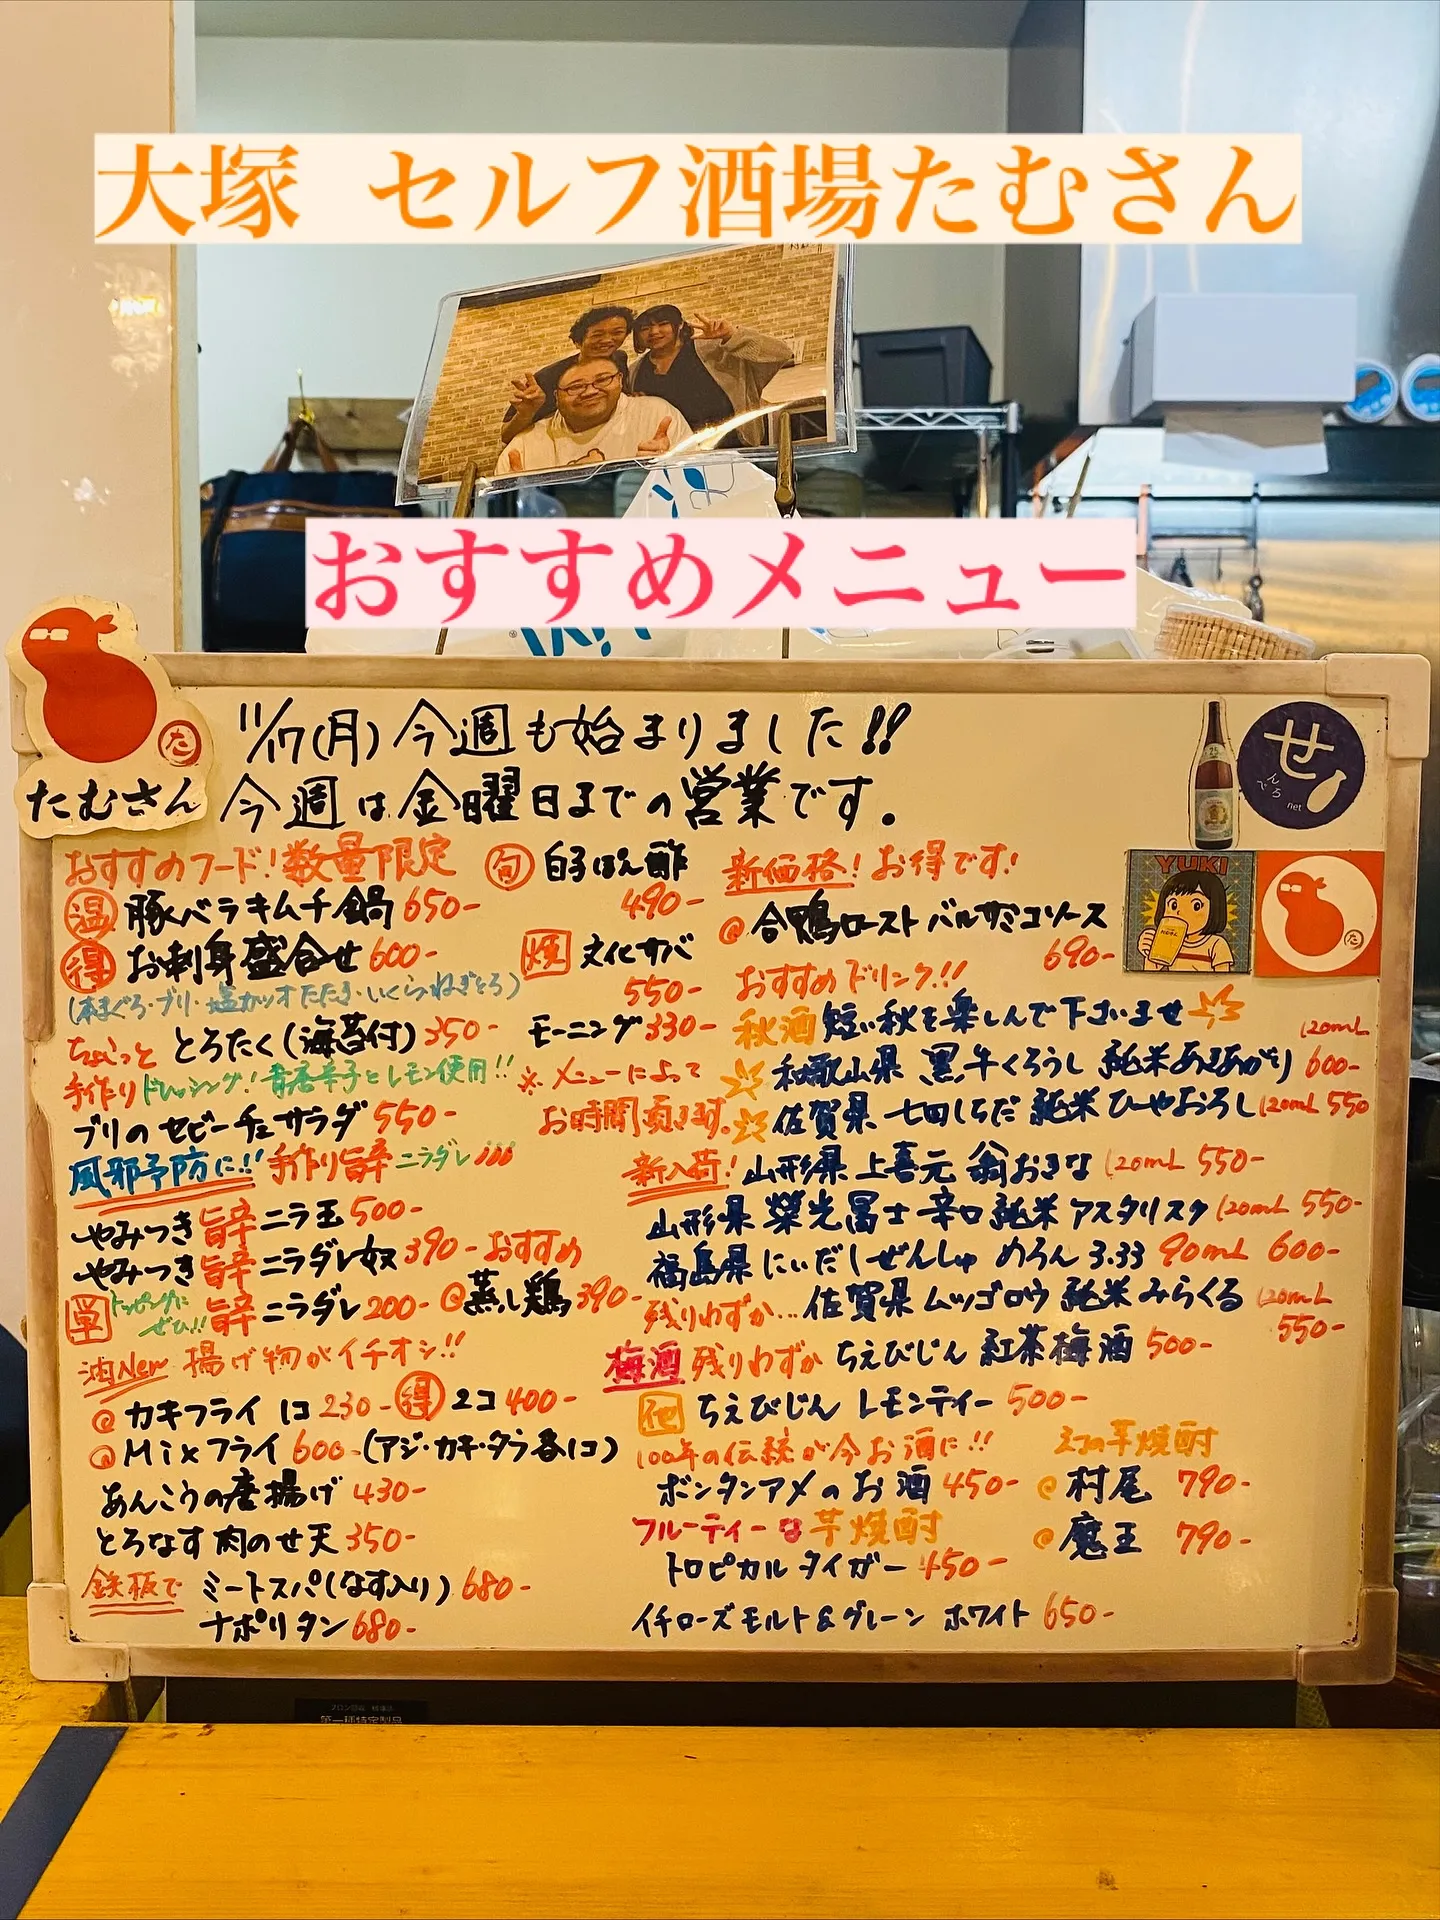 大塚 セルフ酒場たむさん
おすすめメニュー
た
たむさん
11/17(月) 今週も始まりました!!
今週は金曜日までの営業です。
せ
んべろ
net
YUKI
た
おすすめフード!数量限定
温 豚バラキムチ鍋 650-
得 お刺身盛合せ 600-
(本まぐろ・ブリ・塩カツオたたき・いくら・ねぎとろ)
とろたく(海苔付) 350-
ちょこっと
手作りドレッシング!青唐辛子とレモン使用!!
ブリのセビーチェサラダ 550-
風邪予防に!! 手作り旨辛ニラダレ
やみつき旨辛ニラ玉 500-
やみつき旨辛ニラダレ奴 390-
単 トッピングにぜひ!! 旨辛ニラダレ 200-
おすすめ
@蒸し鶏 390-
油New 揚げ物がイチオシ!!
@カキフライ 1コ 230- 得 2コ 400-
@Mixフライ 600- (アジ・カキ・タラ各1コ)
あんこうの唐揚げ 430-
とろなす肉のせ天 350-
鉄板で ミートスパ(なす入り) 680-
ナポリタン 680-
旬 白子ぽん酢
490-
焼 文化サバ
550-
モーニング 330-
※メニューによって
お時間頂きます。
新価格!お得です!
@合鴨ロースト バルサミコソース
690-
おすすめドリンク!!
秋酒 短い秋を楽しんで下さいませ
和歌山県 黒牛くろうし 純米あきあがり 120mL 600-
佐賀県 七田しちだ 純米 ひやおろし 120mL 550
新入荷! 山形県 上喜元 翁おきな 120mL 550-
山形県 榮光冨士 辛口純米 アスタリスク 120mL 550-
福島県 にいだしぜんしゅ めろん 3.33 90mL 600-
残りわずか… 佐賀県 ムツゴロウ 純米 みらくる 120mL
550-
梅酒 残りわずか ちえびじん 紅茶梅酒 500-
他 ちえびじん レモンティー 500-
100年の伝統が今お酒に!!
ボンタンアメのお酒 450-
フルーティーな芋焼酎
トロピカルタイガー 450-
イチローズモルト&グレーン ホワイト 650-
芋焼酎
@村尾 790-
@魔王 790-
第一種特定製品